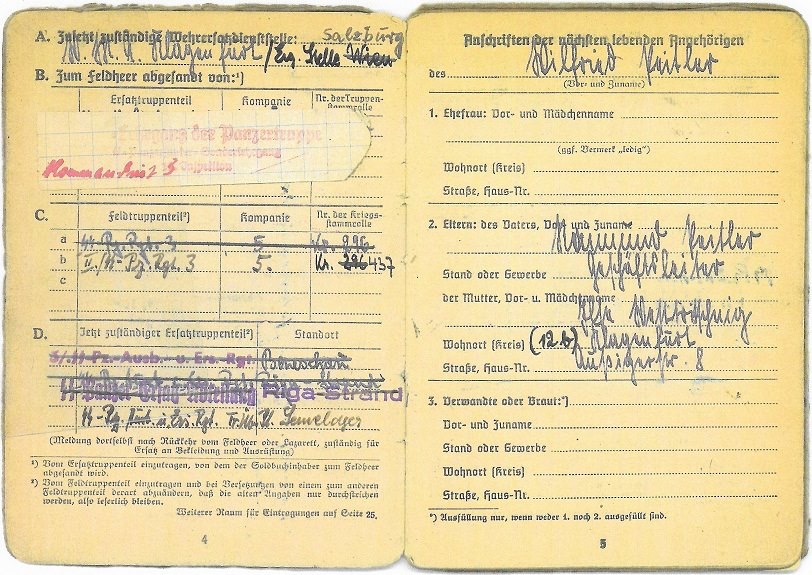 A. Zuletzt zuständige Wehrersatzdienststelle: Salzburg
W. M. A. Klagenfurt/Erg. Stelle Wien
B. Zum Feldheer abgesandt von:¹)
Ersatztruppenteil Kompanie Nr. der Truppenstammrolle
Lehrgang der Panzertruppe
C. Feldtruppenteil²) Kompanie Nr. der Kriegsstammrolle
a ᛋᛋ Pz. Rgt. 3 5. Nr. 296
b II./ᛋᛋ-Pz. Rgt. 3 5. Nr. 296 437
c
D. Jetzt zuständiger Ersatztruppenteil²) Standort
ᛋᛋ Pz.-Ausb.- u. Ers. Rgt. Beneschau
ᛋᛋ Panzer Ersatz Abteilung Riga-Strand
ᛋᛋ-Pz. Ausb. u. Ers. Rgt. Tr. Üb. Pl. Sennelager
(Meldung dortselbst nach Rückkehr vom Feldheer oder Lazarett, zuständig für
Ersatz an Bekleidung und Ausrüstung)
¹) Vom Ersatztruppenteil einzutragen, von dem der Soldbuchinhaber zum Feldheer
abgesandt wird.
²) Vom Feldtruppenteil einzutragen und bei Versetzungen von einem zum anderen
Feldtruppenteil derart abzuändern, daß die alten Angaben nur durchstrichen
werden, also leserlich bleiben.
Weiterer Raum für Eintragungen auf Seite 25.
4
Anschriften der nächsten lebenden Angehörigen
des Wilfried Peitler
(Vor- und Zuname)
1. Ehefrau: Vor- und Mädchenname
(ggf. Vermerk „ledig")
Wohnort (Kreis)
Straße, Haus-Nr.
2. Eltern: des Vaters, Vor- und Zuname Raimund Peitler
Stand oder Gewerbe Geschäftsleiter
der Mutter, Vor- u. Mädchenname Ilse
Wohnort (Kreis) (12b) Klagenfurt
Straße, Haus-Nr. Außigerstr. 8
3. Verwandte oder Braut:*)
Vor- und Zuname
Stand oder Gewerbe
Wohnort (Kreis)
Straße, Haus-Nr.
*) Ausfüllung nur, wenn weder 1. noch 2. ausgefüllt sind.
5